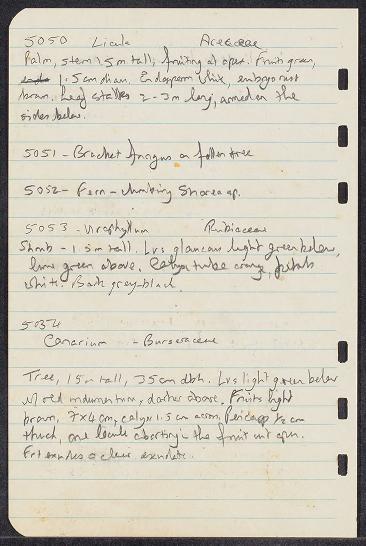 5050 Licuala Arecaceae
Palm, stem 1.5m tall, fruiting at apex. Fruits green,
1.5cm diam. Endosperm white, embryo rust
brown. Leaf stalks 2-3m long, armed on the
sides below.
5051 - Bracket fungus on fallen tree
5052 - Fern - climbing Shorea sp.
5053 - Urophyllum Rubiaceae
Shrub - 1.5m tall. Lvs glaucous light green below,
lime green above. Calyx tube orange, petals
white. Bark grey-black.
5054
Canarium - Burseraceae
Tree, 15m tall, 35cm dbh. Lvs light green below
w/ red indumentum, darker above. Fruits light
brown, 7x4cm, calyx 1.5cm across. Pericarp ½ cm
thick, one locule aborting in the fruit
Frt exudes a clear exudate.